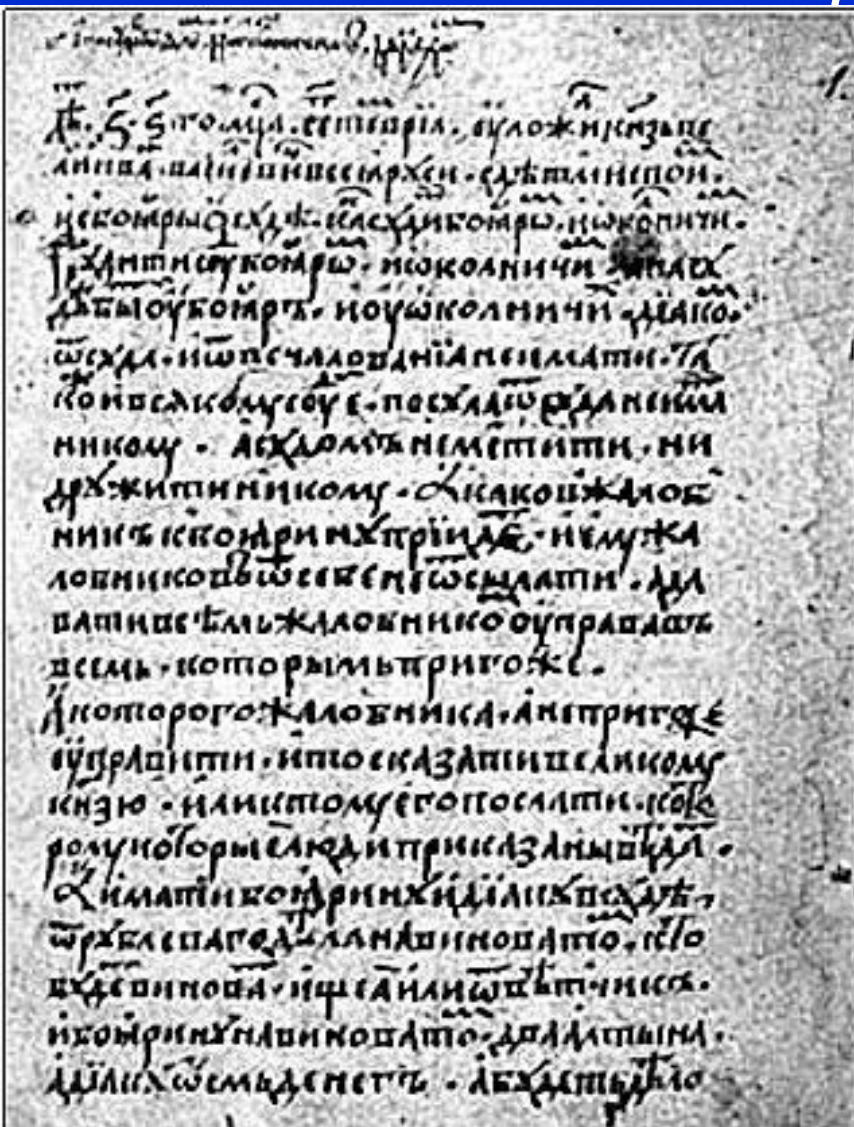 лѣ҃. ҂Ѕ҃. Ѕ҃го. мцⷭ҇а. септеврїа. оуложи кнѧзь ве
не боꙗры о сꙋдѣ. каⷦ сꙋдиⷮ боꙗроⷨ. и ѡколничи.
сꙋдити сꙋⷣ боꙗроⷨ. и ѡколничиⷨ. а на сꙋ
дѣ быⷮ оу боꙗръ. и оу ѡколничиⷯ. дїакоⷨ.
ѿ сꙋда. и ѿ печалованїа не имати. та
ко и всѧкому соудїе. посꙋла ѿ сꙋда не имаⷮ
никому. а сꙋдомъ не мстити. ни
дрꙋжити никому. а каковъ жалоб
никъ к боꙗринꙋ прїидеⷮ. и ему жа
лобниковъ ѿ себе не ѿсылати. а да
вати всѣмъ жалобникоⷨ оуправа въ
всемь. которымь пригоже.
а которого жалобника. а не пригоже
оуправити. и то сказати великому
кнѧзю. или к тому его послати. кото
рому которые люди приказаны вѣдаⷮ.
а имати боꙗринꙋ и дїакꙋ в сꙋдѣ.
ѿ рꙋблеваго дѣла на виноватоⷨ. кто
бꙋдеⷮ виноваⷮ. ищеа или ѿвѣтчикъ.
и боꙗринꙋ на виноватоⷨ. два алтына.
а дїакꙋ ѡсмь денегъ. а бꙋдеть дѣло